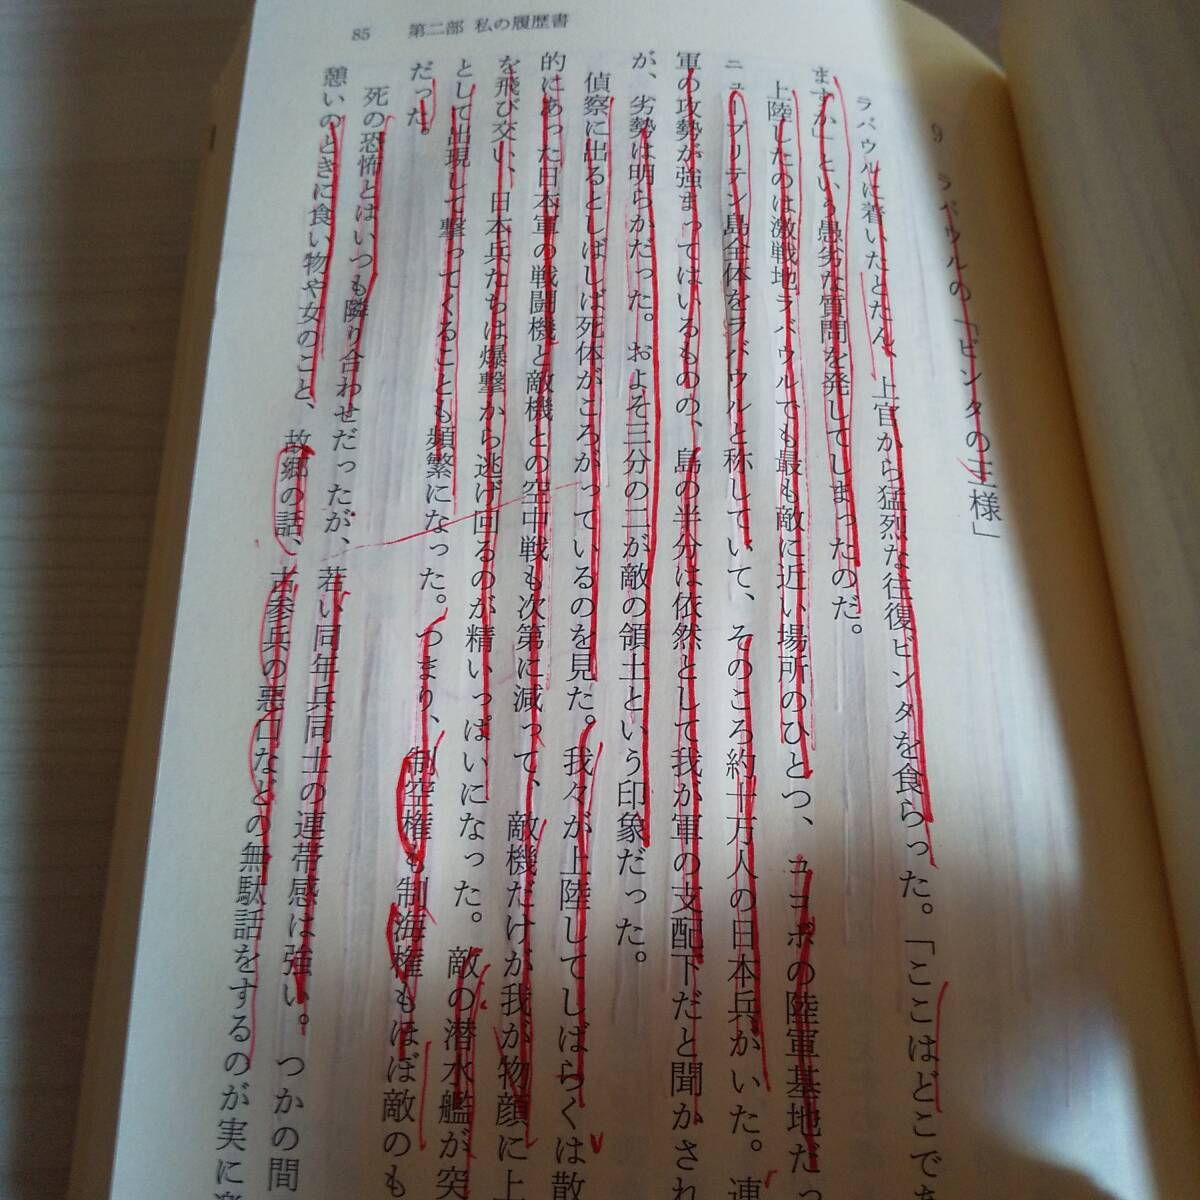 85 第二部 私の履歴書
9 ラバウルの「ビンタの王様」
ラバウルに着いたとたん、上官から猛烈な往復ビンタを食らった。「ここはどこであ
ますか」という愚劣な質問を発してしまったのだ。
上陸したのは激戦地ラバウルでも最も敵に近い場所のひとつ、ココポの陸軍基地だっ
ニューブリテン島全体をラバウルと称していて、そのころ約十万人の日本兵がいた。連
軍の攻勢が強まってはいるものの、島の半分は依然として我が軍の支配下だと聞かされ
が、劣勢は明らかだった。およそ三分の二が敵の領土という印象だった。
偵察に出るとしばしば死体がころがっているのを見た。我々が上陸してしばらくは散
的にあった日本軍の戦闘機と敵機との空中戦も次第に減って、敵機だけが我が物顔に上
を飛び交い、日本兵たちは爆撃から逃げ回るのが精いっぱいになった。敵の潜水艦が突
として出現して撃ってくることも頻繁になった。つまり、制空権も制海権もほぼ敵のも
だった。
死の恐怖とはいつも隣り合わせだったが、若い同年兵同士の連帯感は強い。つかの間
憩いのときに食い物や女のこと、故郷の話、古参兵の悪口などの無駄話をするのが実に